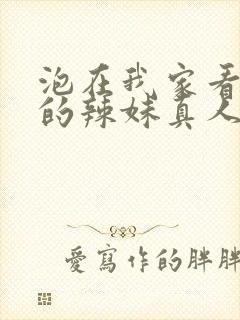 泡在我家看
的辣妹真人
愛寫作的胖胖